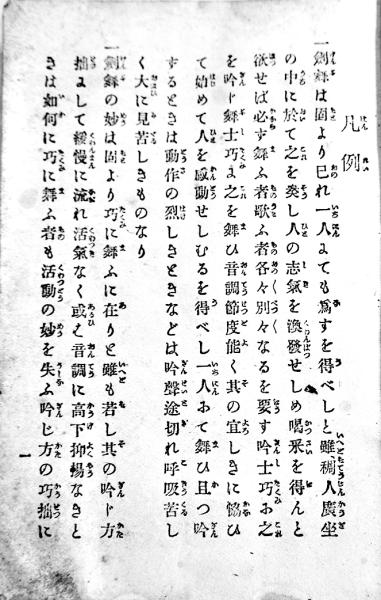 凡例
一劍舞は固より已れ一人よても爲すを得べしと雖稠人廣坐
の中に於て之を奏し人の志氣を渙發せしめ喝采を得んと
欲せば必す舞ふ者歌ふ者各々別々なるを要す吟士巧よ之
を吟じ舞士巧よ之を舞ひ音調節度能く其の宜しきに恊ひ
て始めて人を感動せしむるを得べし一人おて舞ひ且つ吟
するときは動作の烈しきときなどは吟聲途切れ呼吸苦し
く大に見苦しきものなり
一劍舞の妙は固より巧に舞ふに在りと雖も若し其の吟じ方
拙よして緩慢に流れ活氣なく或え音調に高下抑暢なきと
きは如何に巧に舞ふ者も活動の妙を失ふ吟じ方の巧拙に
一